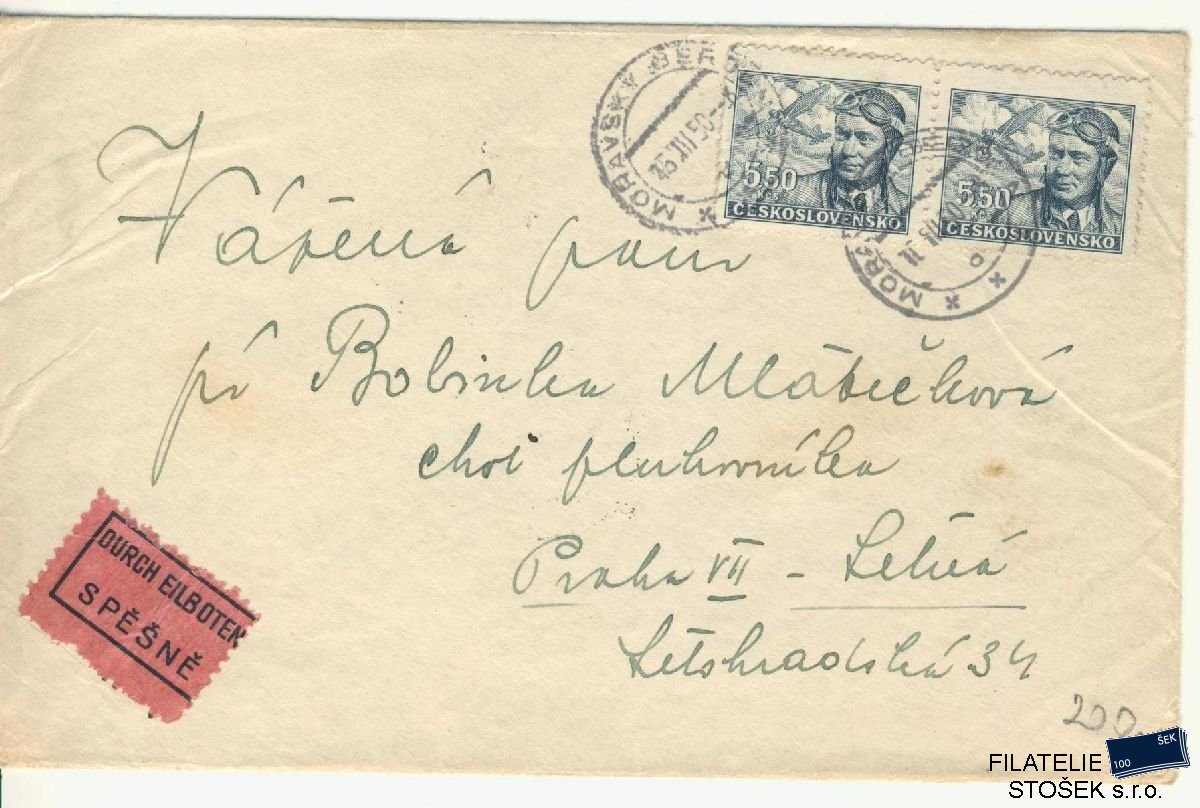 MORAVSKÝ BEROUN
5.50 Kčs
ČESKOSLOVENSKO
5.50 Kčs
ČESKOSLOVENSKO
Vážená paní
pí Bobinka Mlátičková
choť plukovníka
Praha VII – Letná
Letohradská 34
DURCH EILBOTEN
SPĚŠNĚ
200
FILATELIE
STOŠEK s.r.o.
100
ŠEK